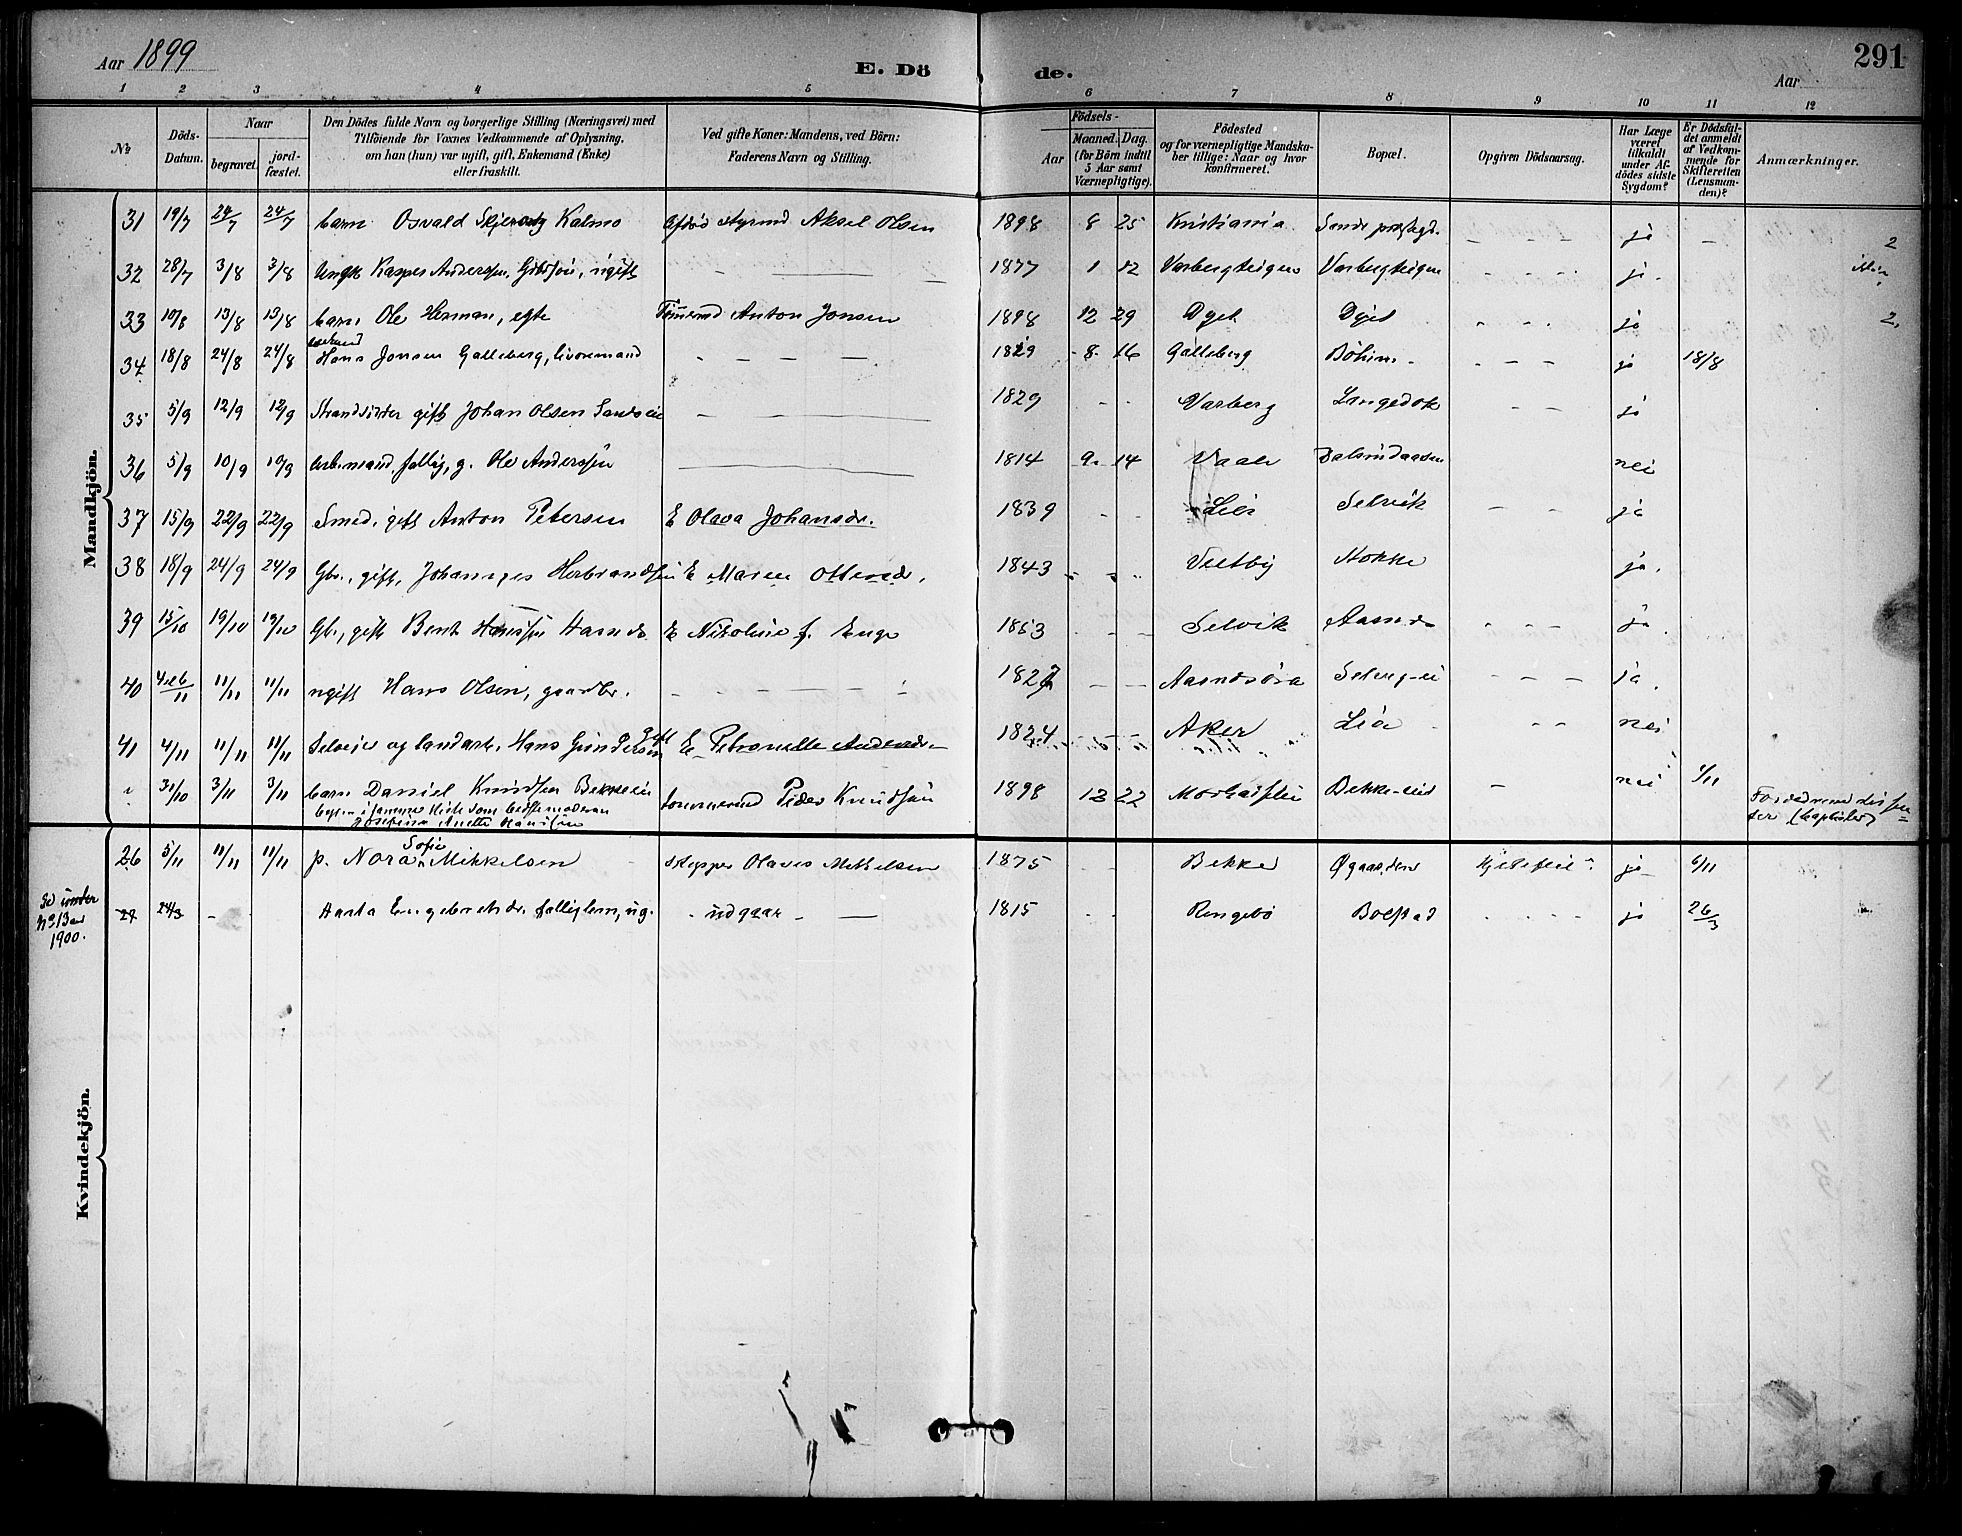 Aar 1899
E. Dö de.
Aar
291
1 2 3 4 5 6 7 8 9 10 11 12
No
Döds-Datum.
Naar
begravet.
jord-fæstet.
Den Dödes fulde Navn og borgerlige Stilling (Næringsvei) med
Tilföiende for Voxnes Vedkommende af Oplysning,
om han (hun) var ugift, gift, Enkemand (Enke)
eller fraskilt.
Ved gifte Koner: Mandens, ved Börn:
Faderens Navn og Stilling.
Födsels-
Aar
Maaned. Dag.
(for Börn indtil
5 Aar samt
Værnepligtige).
Födested
og for værnepligtige Mandska-
ber tillige: Naar og hvor
konfirmeret.
Bopæl.
Opgiven Dödsaarsag.
Har Læge
været
tilkaldt
under Af-
dödes sidste
Sygdom?
Er Dödsfal-
det anmeldt
af Vedkom-
mende for
Skifteretten
(Lensman-
den)?
Anmærkninger.
Mandkjön.
31 19/7 24/7 24/7 barn Osvald Kalmo Aksel Olsen 1898 8 25 Kristiania ja 2
32 28/7 3/8 3/8 Ungk Kasper Anderssen, ugift 1877 1 12 Varbergteigen Varbergteigen ja.
33 10/8 13/8 13/8 barn, Ole Herman, egte Anton Jonsen 1898 12 29 Dyet Dyet ja 2,
34 18/8 24/8 24/8 Hans Jonsen Galleberg, livøremand 1829 8 16 Galleberg Böhm ja 18/8
35 5/9 12/9 12/9 Strandsidder gift Johan Olsen 1829 Varberg Langedok ja
36 5/9 10/9 10/9 Arb.mand, fattig, g. Ole Anderssen 1814 9. 14 Vaale nei
37 15/9 22/9 22/9 Smed, gift Anton Petersen E Olava Johansdr. 1839 Lier Selvik ja
38 18/9 24/9 24/9 Gbr., gift, Johannes Herbrandsen E Maren Ottersdr. 1843 Vestby Stokke ja.
39 15/10 19/10 19/10 Gbr., gift Bent Hanssen Aasnes E Nikoline f. Enge 1853 Selvik Aasnes ja.
40 11 11/11 11/11 ugift Hans Olsen, gaardbr. 1827 Aasnesøra ja.
41 4/11 11/11 11/11 Selveier og landark. Hans Gundersen Gift E Petronelle Andersdr. 1824 Aker Lia nei
31/10 3/11 3/11 barn Daniel Knudsen Bekkeeie tømmermd Peder Knudsen 1898 12 22 Bekke-eie nei 4/11
begr. i samme kiste som bedstemoderen
Josefine Anette Hansen
Forældrene dissen-
ter (baptister)
Kvindekjön.
26 5/11 11/11 11/11 p. Nora Sofie Mikkelsen skipper Olaves Mikkelsen 1875 Bekke Øgaarden Hjertefeil ja 6/11
Se under
No 13 aar
1900.
27 24/3 Marta Engebretsdr. fattiglem, ug. udgaar 1815 Ringebö Bolstad ja 26/3